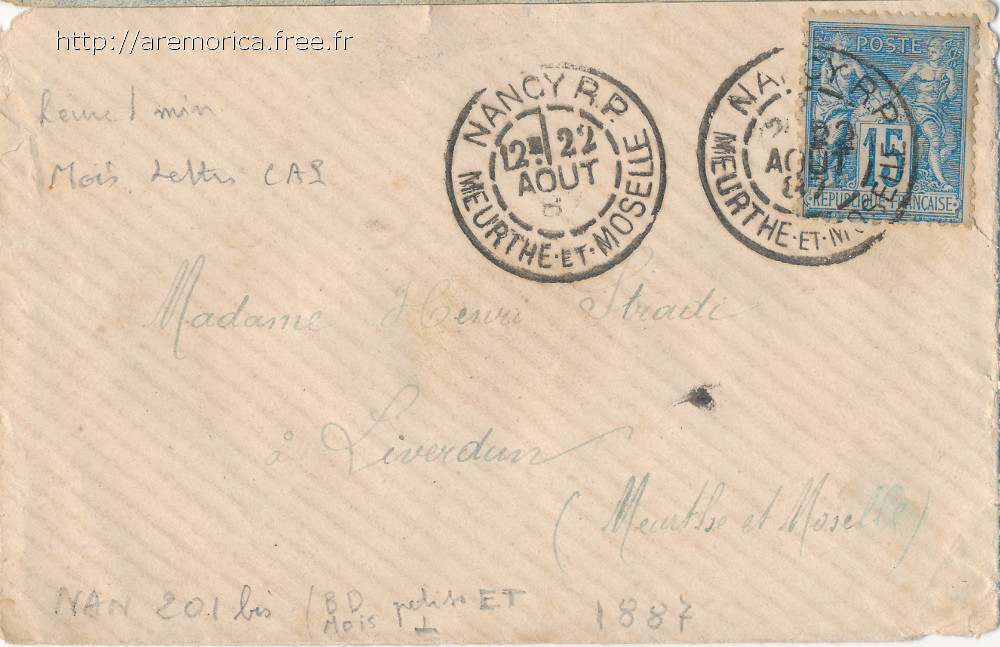 http://aremorica.free.fr
heure / min
Mois Lettres CAS
NANCY R.P.
12 22
AOUT
8
MEURTHE-ET-MOSELLE
NANCY R.P.
22
AOUT
87
MEURTHE-ET-MOSELLE
POSTE
15
REPUBLIQUE FRANÇAISE
Madame Henri Stradi
à Liverdun
(Meurthe et Moselle)
NAN 201 bis (BD petits ET
Mois
1887